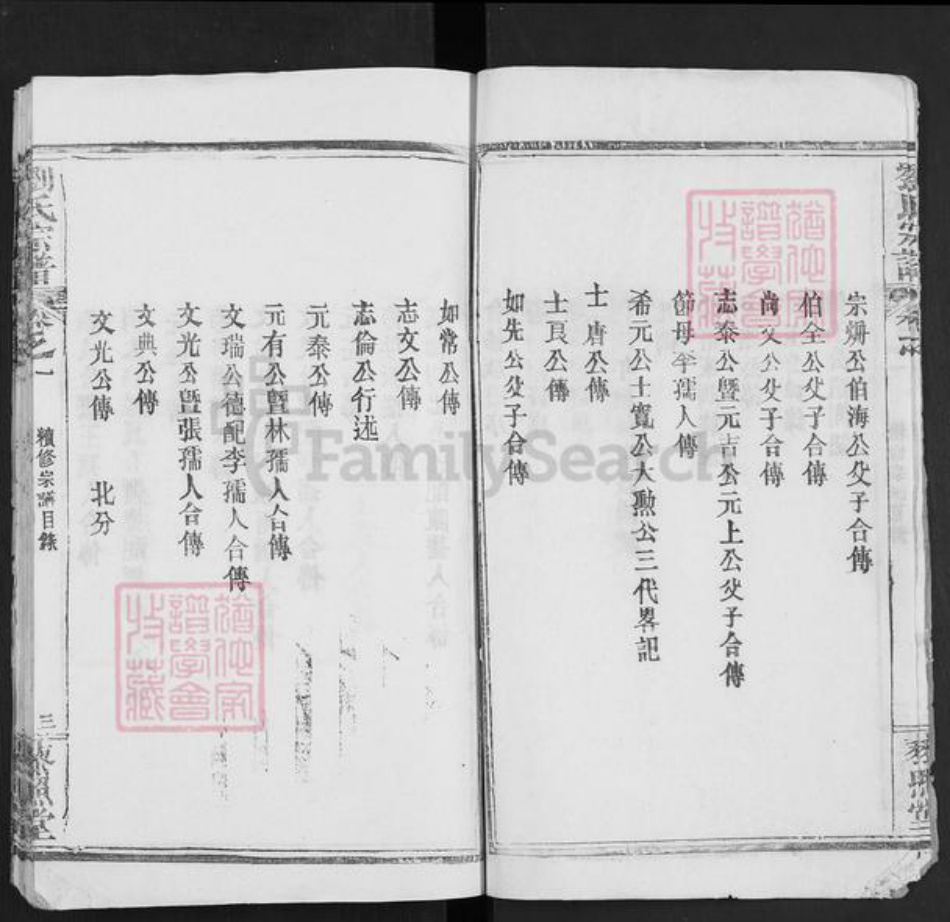 宗煳公伯海公父子合傳
伯全公父子合傳
尚文公父子合傳
志泰公暨元吉公元上公父子合傳
節母李孺人傳
希元公士寬公大勲公三代畧記
士唐公傳
士良公傳
如先公父子合傳
如常公傳
志文公傳
志倫公行述
元泰公傳
元有公暨林孺人合傳
文瑞公德配李孺人合傳
文光公暨張孺人合傳
文典公傳
文光公傳 北分
劉氏宗譜 卷之一 續修宗譜目錄 三 藜照堂
猶他家譜學會收藏
猶他家譜學會收藏
FamilySearch